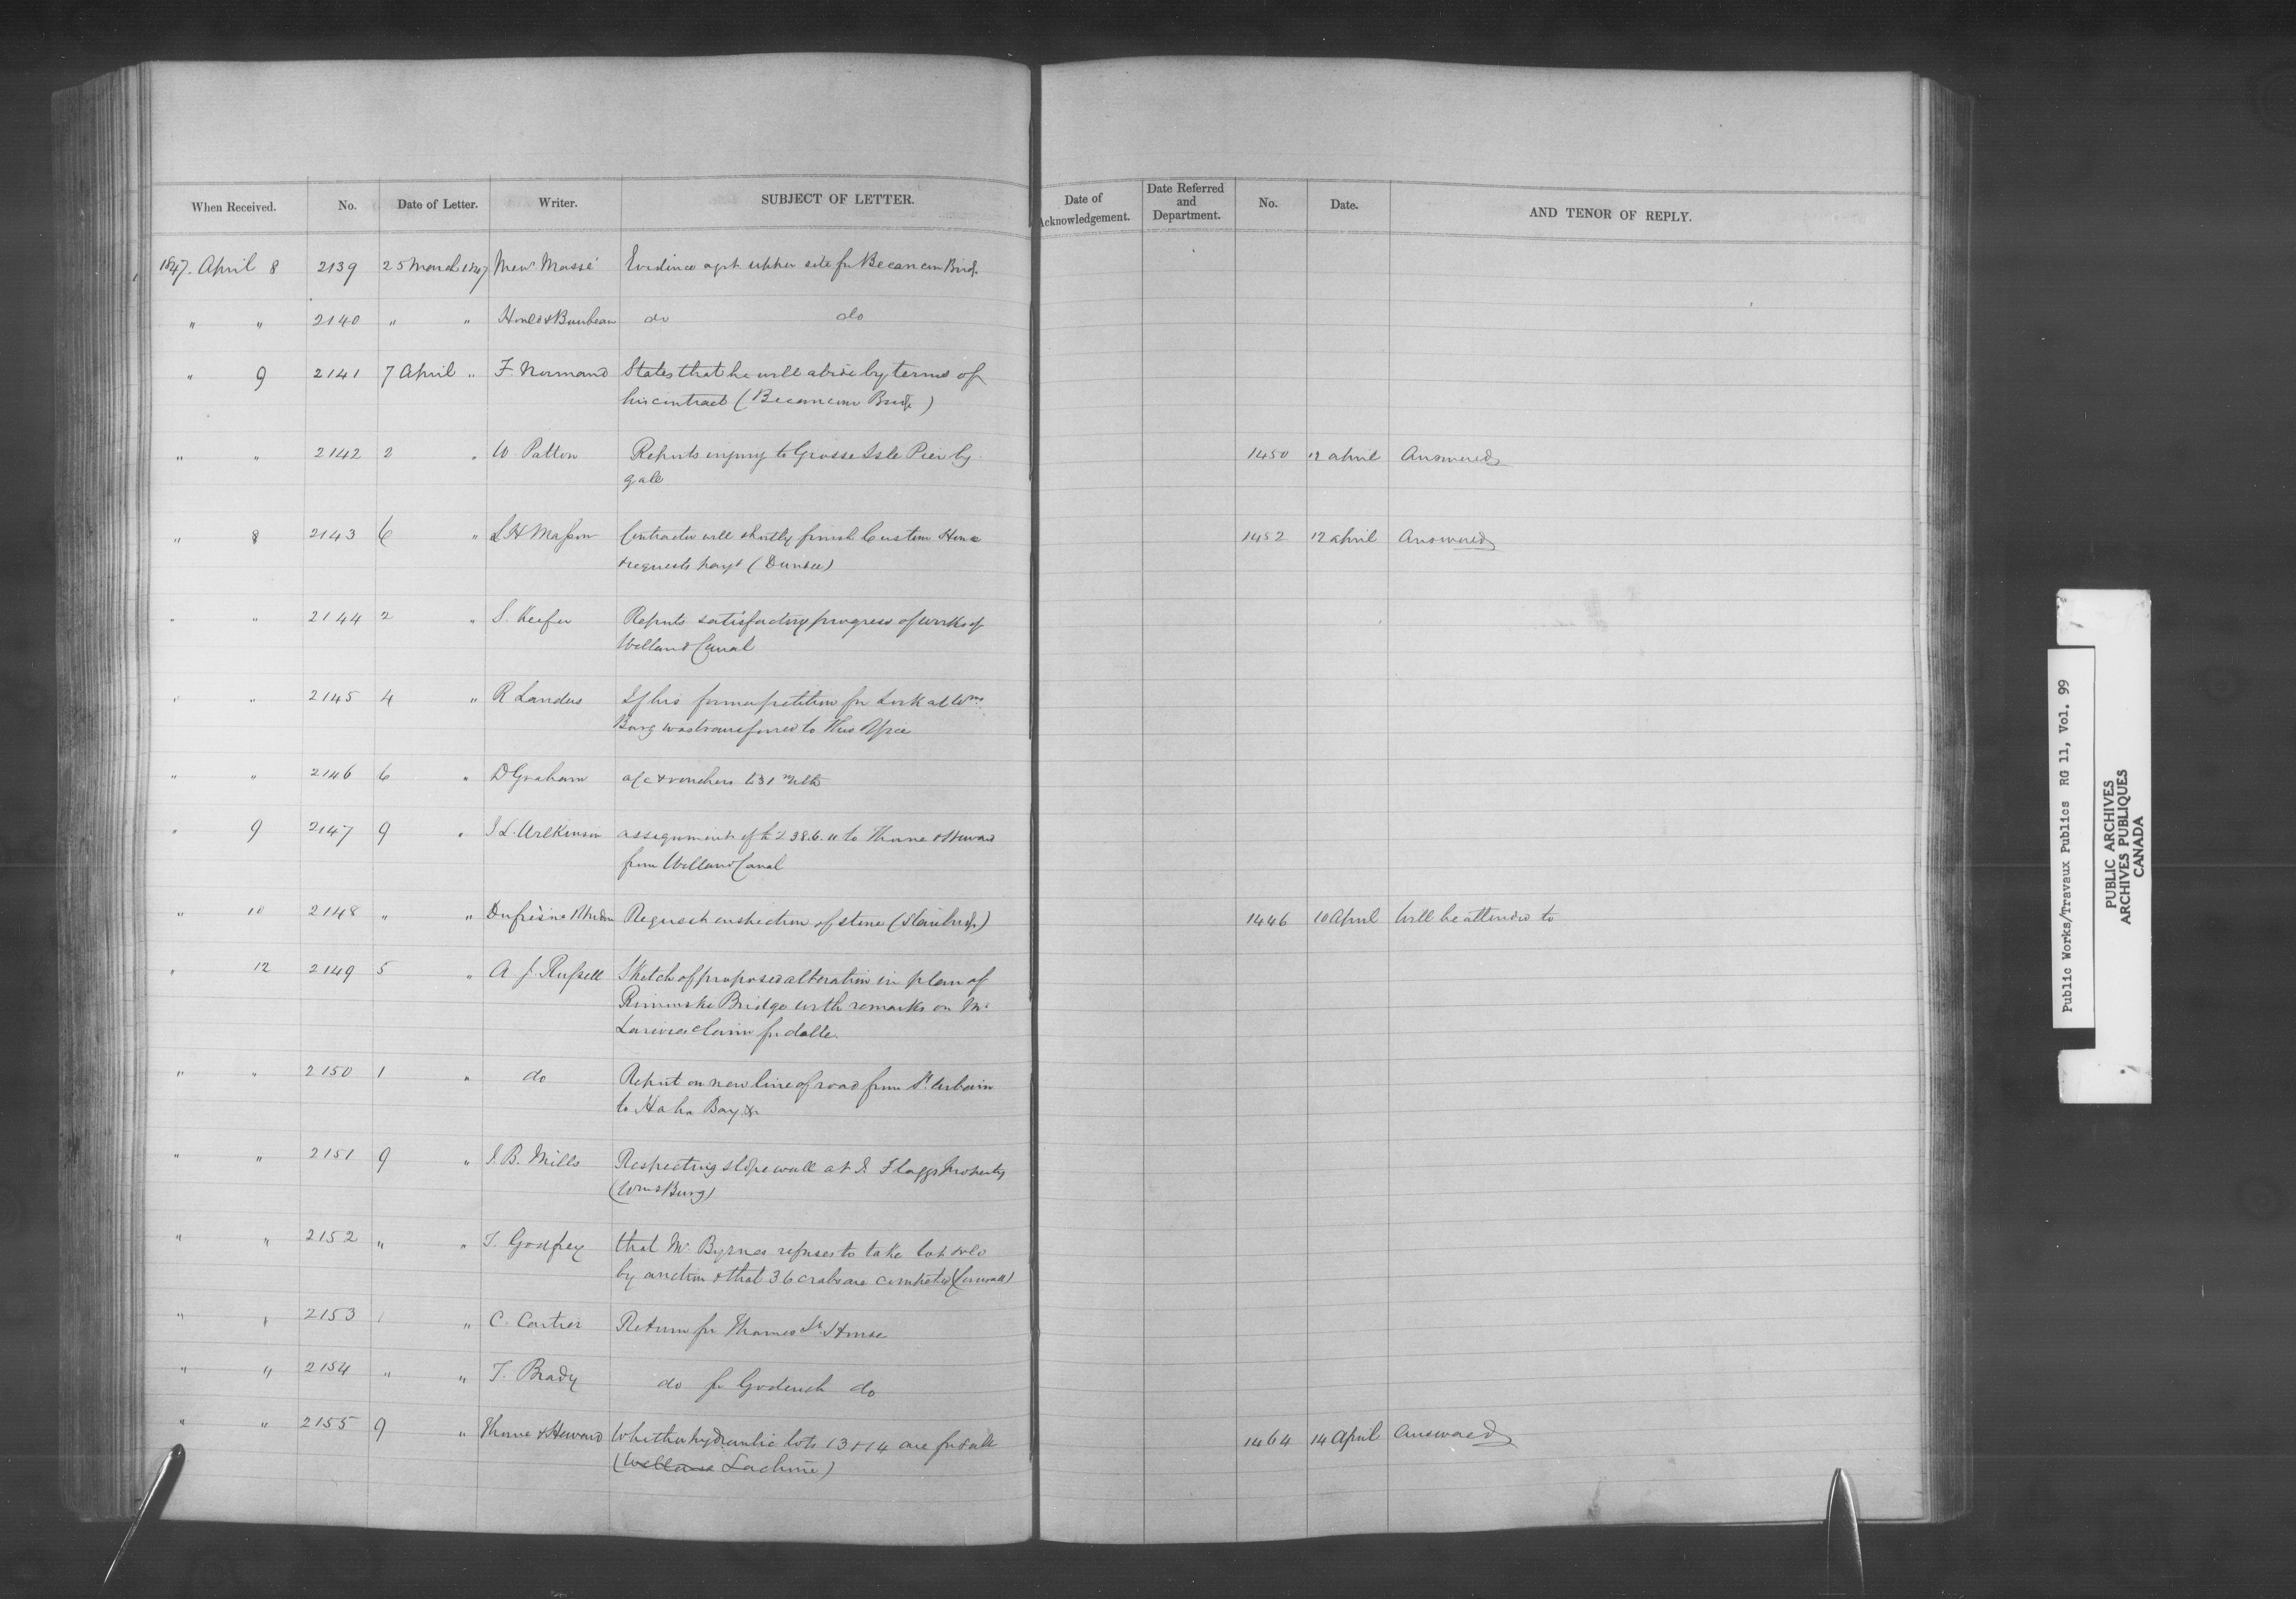 When Received. No. Date of Letter. Writer. SUBJECT OF LETTER. Date of Acknowledgement. Date Referred and Department. No. Date. AND TENOR OF REPLY.
1847. April 8 2139 25 March 1847 Massé Evidence agst upper site for Becancour Bridge
" " 2140 " " do do
" 9 2141 7 April " F. Normand States that he will abide by terms of
his contract (Becancour Bridge)
" " 2142 2 " W Patton Reports injury to Grosse Isle Pier by 1450 12 April Answered
gale
" 8 2143 6 " L H Masson Contractor will shortly finish Custom House 1452 12 April Answered
& requests payt (Dundee)
" " 2144 2 " S. Keefer Reports satisfactory progress of works of
Welland Canal
" " 2145 4 " R Landus If his former petition for Lock at Wms
Burg was transferred to this Office
" " 2146 6 " D Graham a/c & vouchers to 31 ulto
" 9 2147 9 " J. L. Wilkinson assignment of £238.6.11 to Thorne & Heward
from Welland Canal
" 10 2148 " " Dufrèsne Request inspection of stone (Stanbridge) 1446 10 April Will be attended to
" 12 2149 5 " A J. Russell Sketch of proposed alteration in plan of
Rimouski Bridge with remarks on Mr
claim for dalle.
" " 2150 1 " do Report on new line of road from St. Urbain
to Ha ha Bay &c
" " 2151 9 " J. B. Mills Respecting slope wall at J. Flaggs property
(WmsBurg)
" " 2152 " " T. Godfrey that Mr Byrnes refuses to take lot sold
by auction & that 36 crabs are completed (Cornwall)
" " 2153 " C. Cartier Return for Thames St. House
" " 2154 " " T. Brady do for Goderich do
" " 2155 9 " Thorne & Heward Whether hydraulic lots 13 & 14 are for sale 1464 14 April Answered
(Welland Lachine)
Public Works/Travaux Publics RG 11, Vol. 99
PUBLIC ARCHIVES
ARCHIVES PUBLIQUES
CANADA